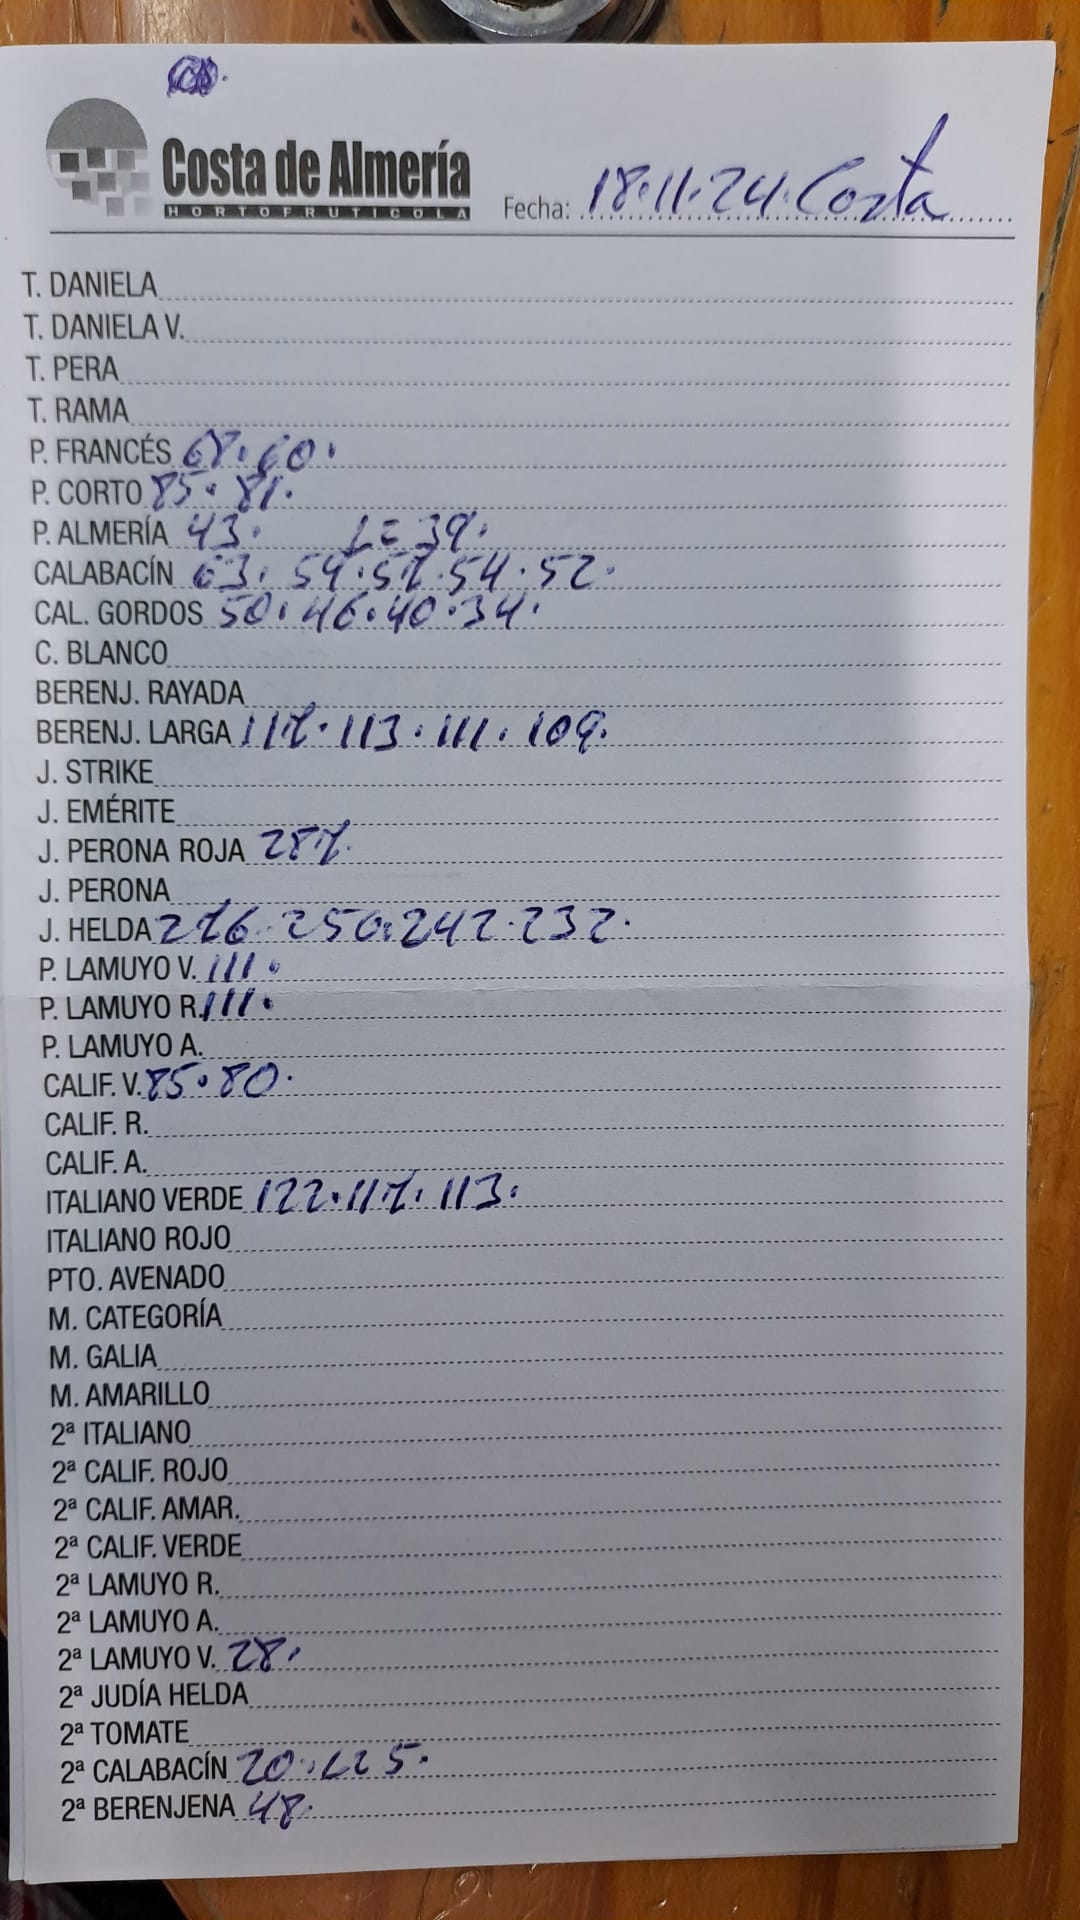 Costa de Almería
HORTOFRUTICOLA
Fecha: 18.11.24. Costa
T. DANIELA
T. DANIELA V.
T. PERA
T. RAMA
P. FRANCÉS 68. 60.
P. CORTO 85. 81.
P. ALMERÍA 43. L= 39.
CALABACÍN 63. 59. 57. 54. 52.
CAL. GORDOS 50. 46. 40. 34.
C. BLANCO
BERENJ. RAYADA
BERENJ. LARGA 117. 113. 111. 109.
J. STRIKE
J. EMÉRITE
J. PERONA ROJA 287.
J. PERONA
J. HELDA 276. 250. 242. 232.
P. LAMUYO V. 111.
P. LAMUYO R. 111.
P. LAMUYO A.
CALIF. V. 85. 80.
CALIF. R.
CALIF. A.
ITALIANO VERDE 122. 117. 113.
ITALIANO ROJO
PTO. AVENADO
M. CATEGORÍA
M. GALIA
M. AMARILLO
2ª ITALIANO
2ª CALIF. ROJO
2ª CALIF. AMAR.
2ª CALIF. VERDE
2ª LAMUYO R.
2ª LAMUYO A.
2ª LAMUYO V. 28.
2ª JUDÍA HELDA
2ª TOMATE
2ª CALABACÍN 20.
2ª BERENJENA 48.